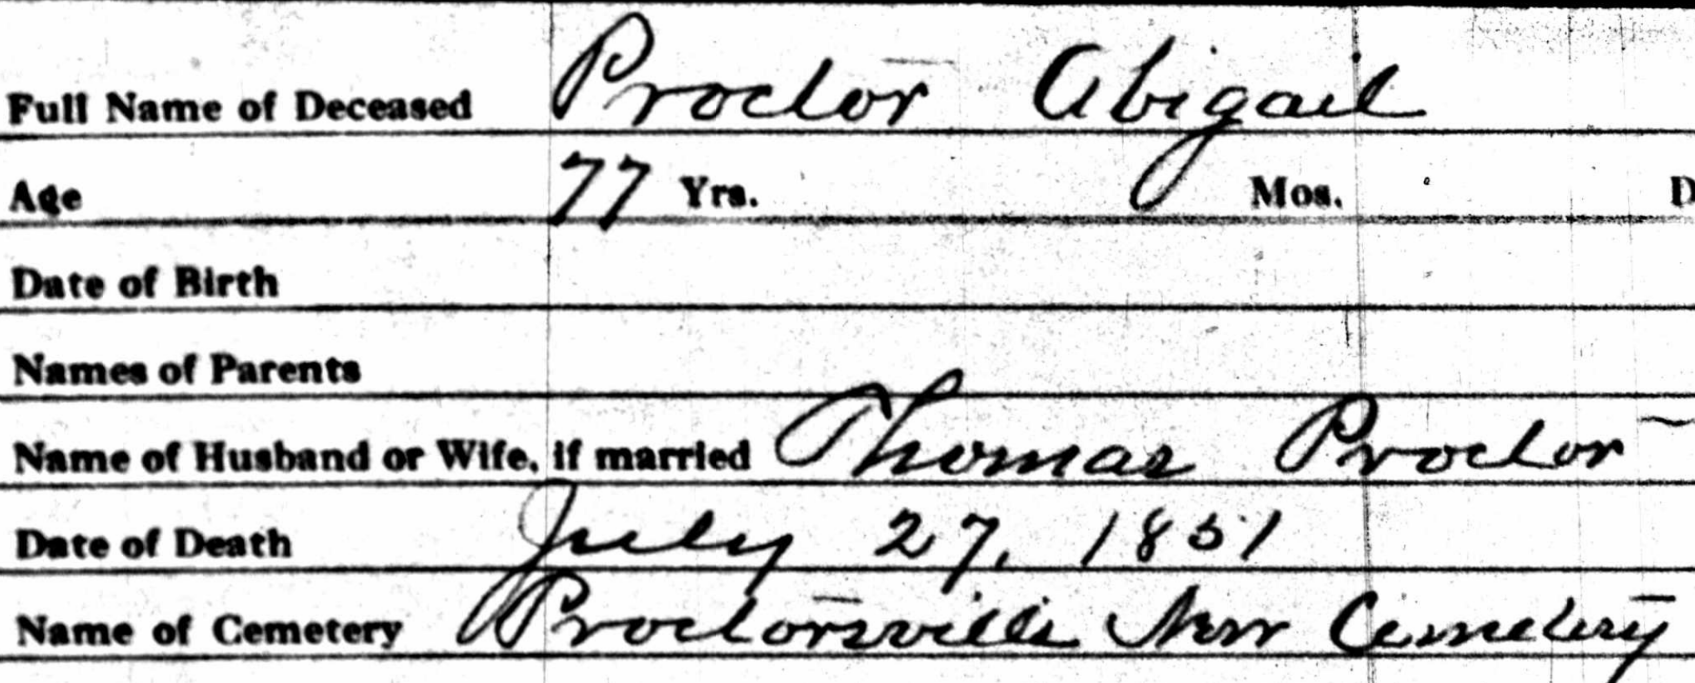 Full Name of Deceased Proctor Abigail
Age 77 Yrs. Mos. D
Date of Birth
Names of Parents
Name of Husband or Wife, if married Thomas Proctor
Date of Death July 27, 1851
Name of Cemetery Proctorsville New Cemetery